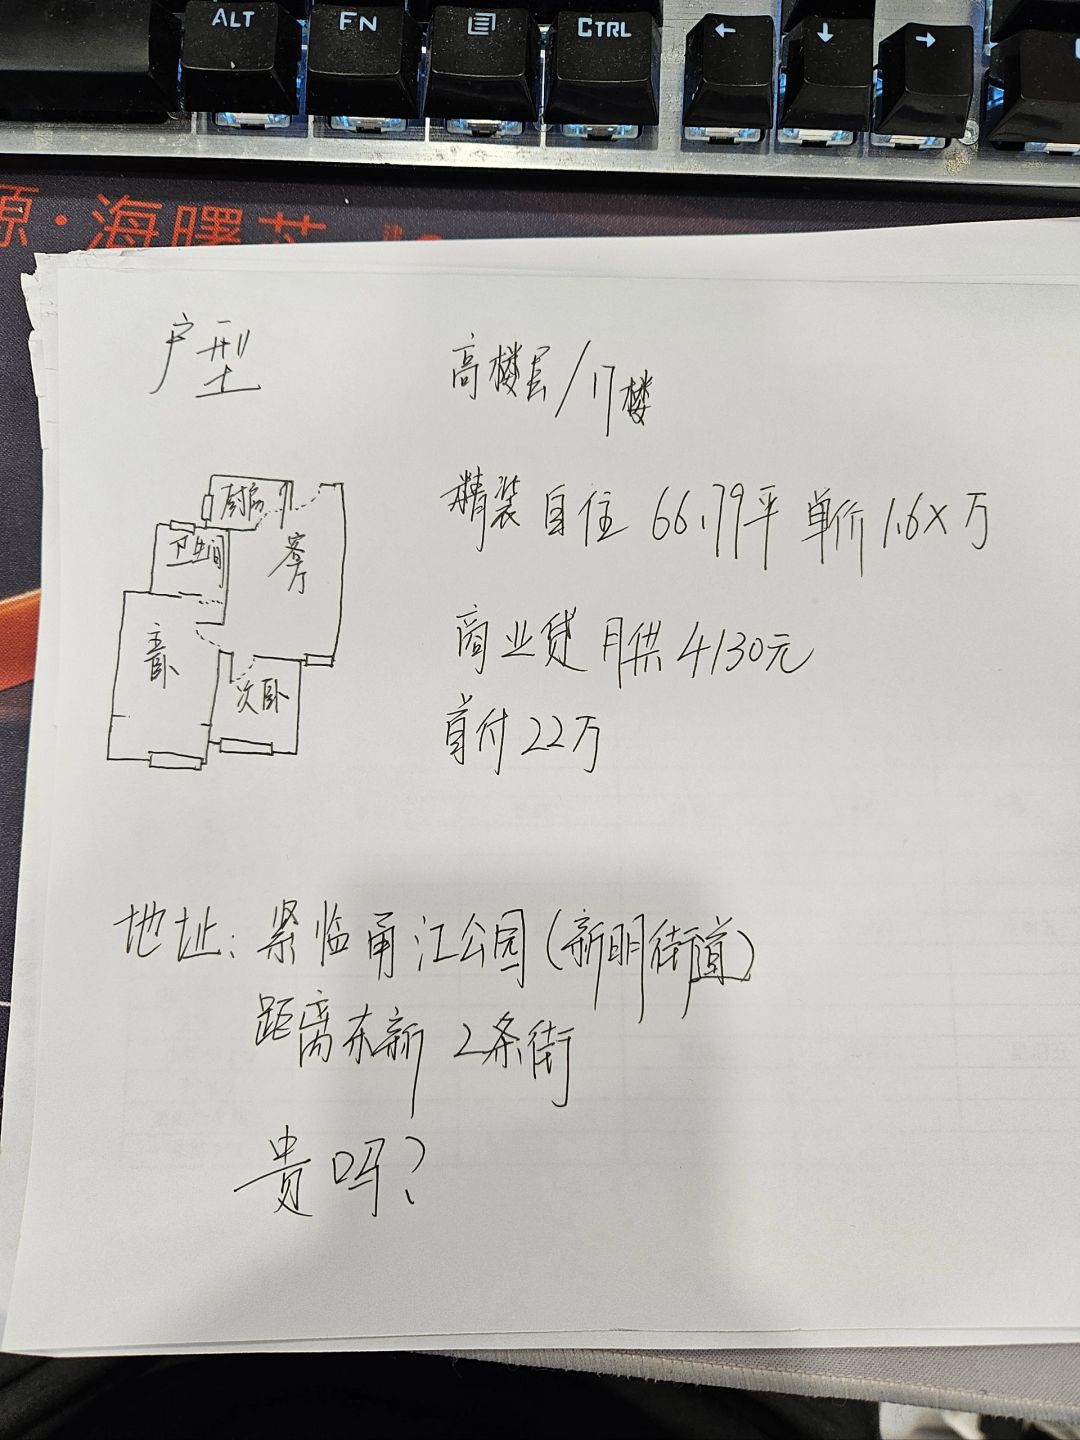 ALT
FN
CTRL
← ↓ →
源·海曙芯
户型
高楼层/17楼
厨房
卫生间
客厅
主卧
次卧
精装自住 66.79平 单价1.6X万
商业贷 月供4130元
首付22万
地址:紧临甬江公园(新明街道)
距离东新2条街
贵吗?